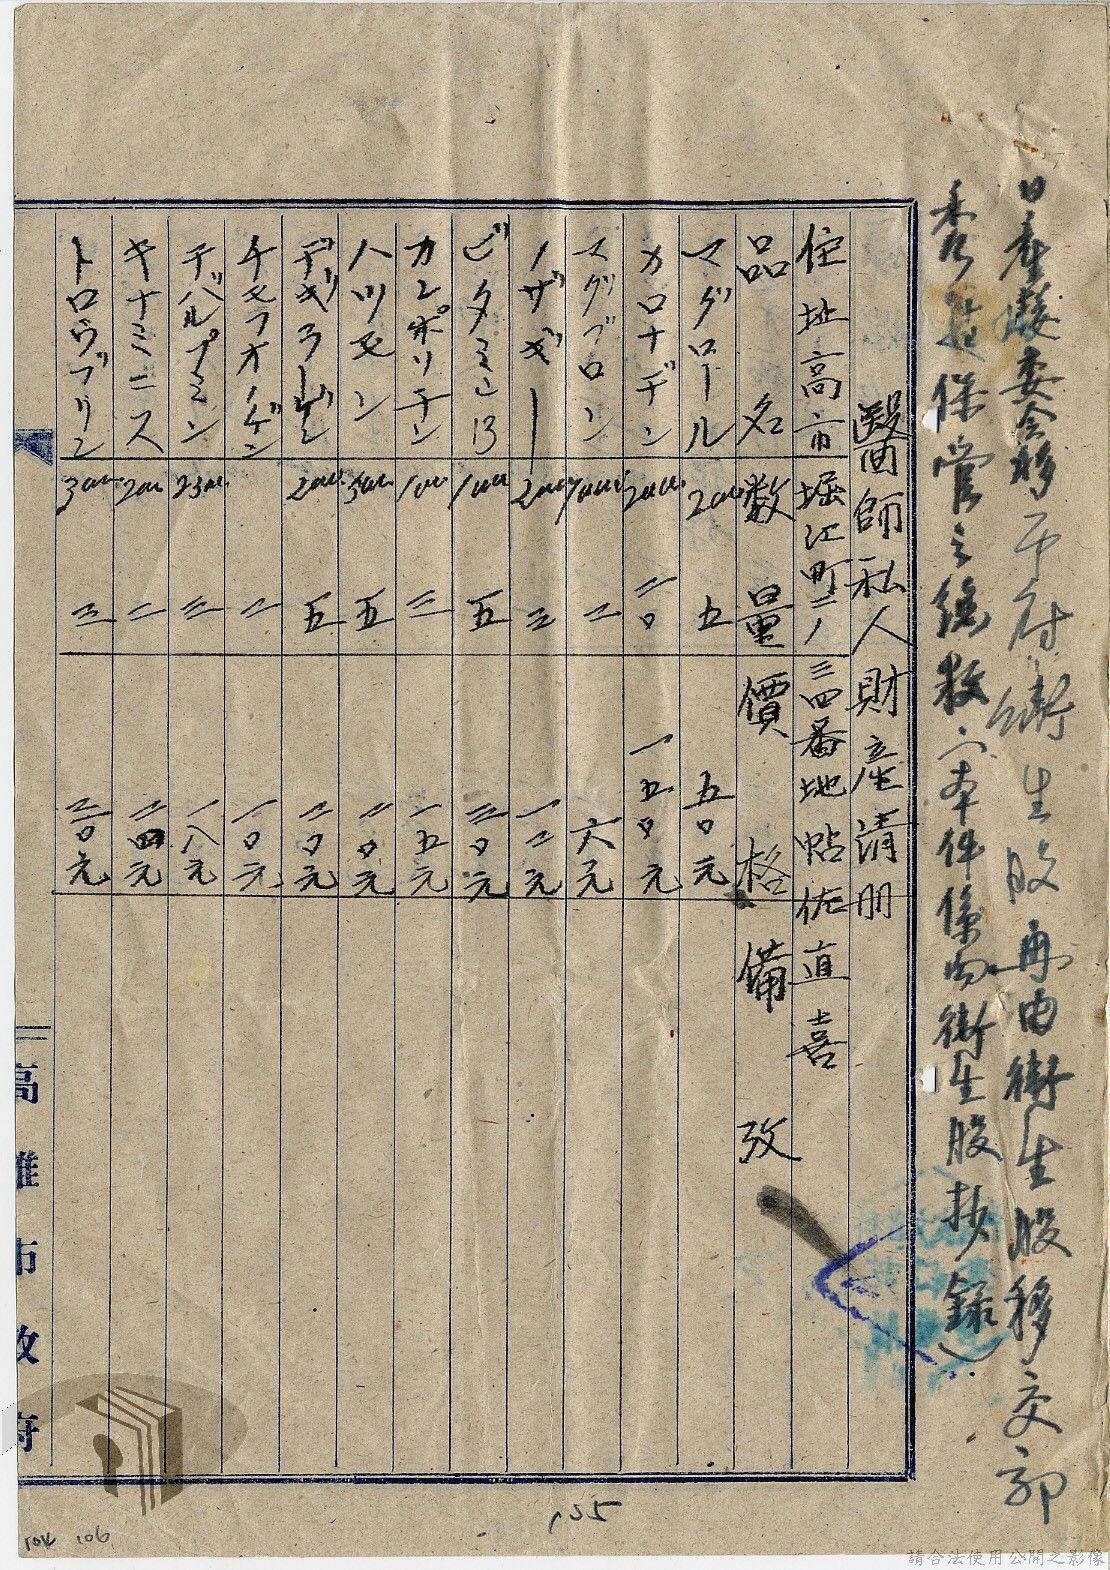 日產處委会移下府衛生股再由衛生股移交郭
秀
保管之總数(本件係由衛生股抄錄)
醫師私人財產清册
住址高市堀江町二ノ三四番地帖佐直喜
品名 数量 價格 備攷
マグロール 200 五 五〇元
カロナヂン 二〇 一五〇元
スグブロン 二 六元
ノザギー 三 一二元
ビタミン13 五 三〇元
カンポリチン 100 三 一五元
ハツモン 五 二〇元
200 五 二〇元
二 一〇元
デバルプミン 三 一八元
キナミニス 200 二 二四元
トロヴブリン 300 三 三〇元
高雄市政府
135
104 106
請合法使用公開之影像